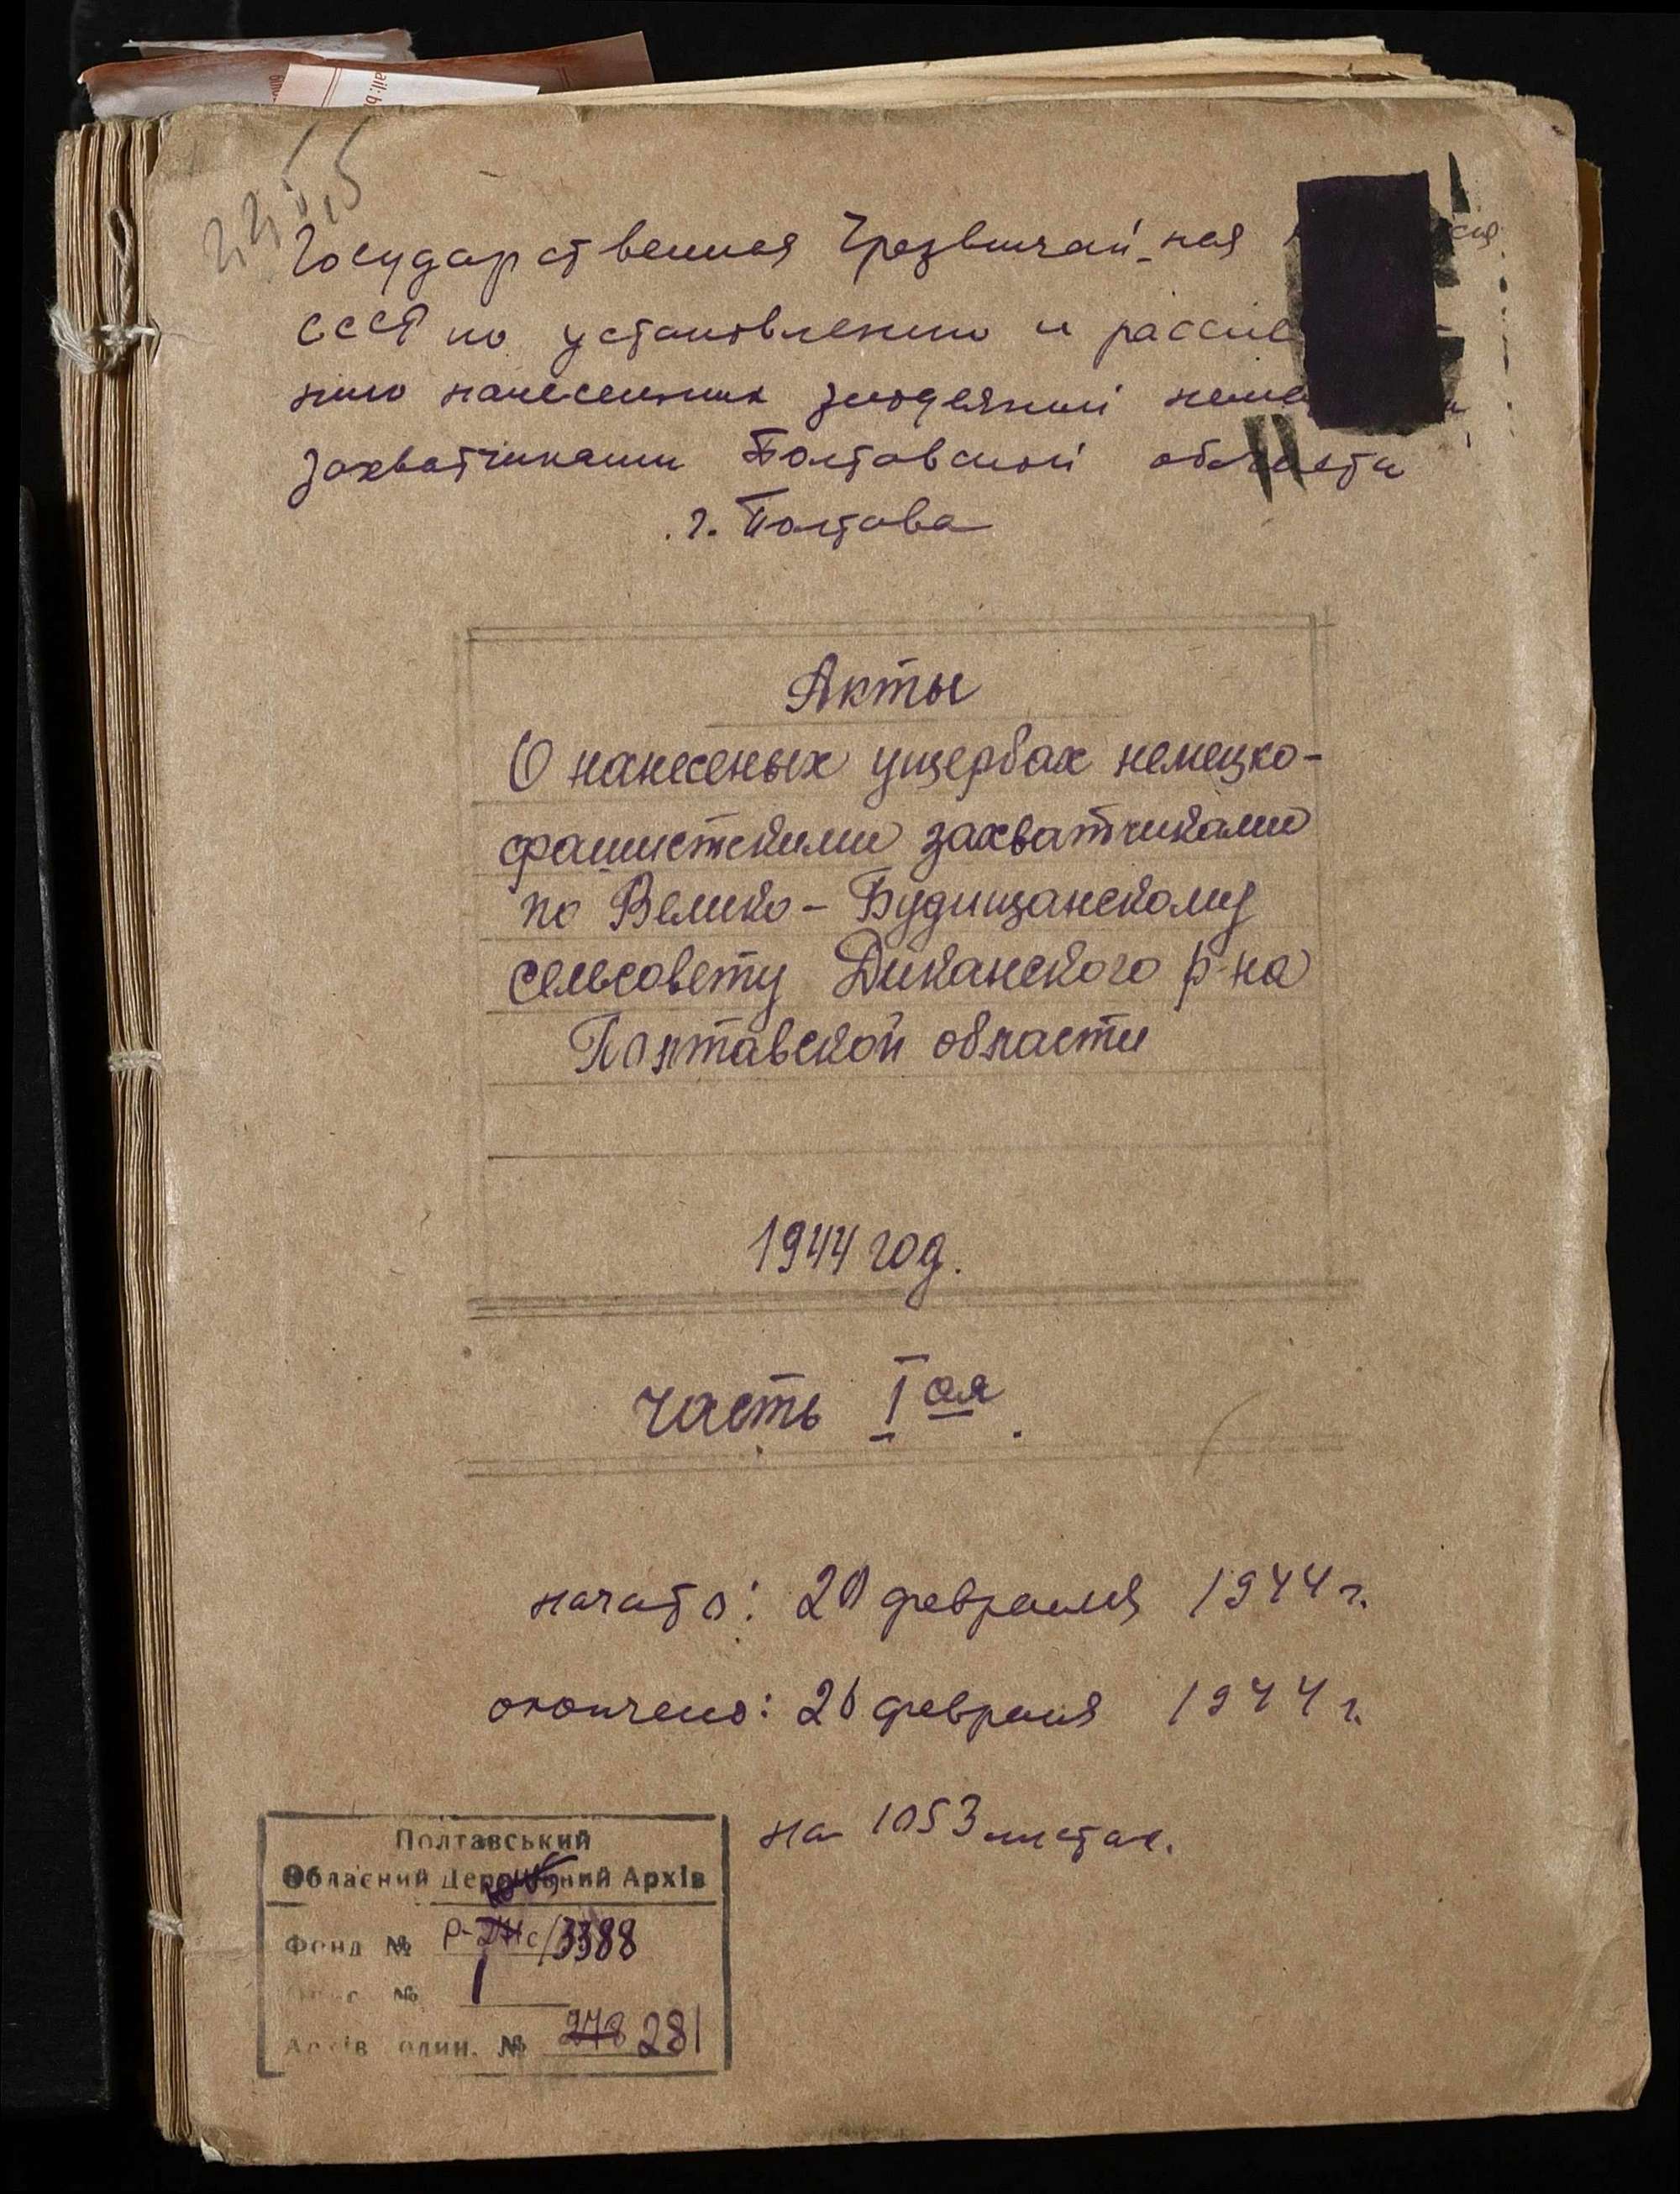 Государственная Чрезвычай-ная
СССР по установлению и рассле
нию нанесенных злодеяний неме
захватчиками Полтавской области
г. Полтава
Акты
О нанесеных ущербах немецко-
фашистскими захватчиками
по Велико-Будищанскому
сельсовету Диканского р-на
Полтавской области
1944 год.
часть Iая.
начато: 20 февраля 1944 г.
окончено: 26 февраля 1944 г.
на 1053 листах.
Полтавський
Обласний Державний Архів
Фонд № Р-3388
№ 1
Архів один. № 278 281